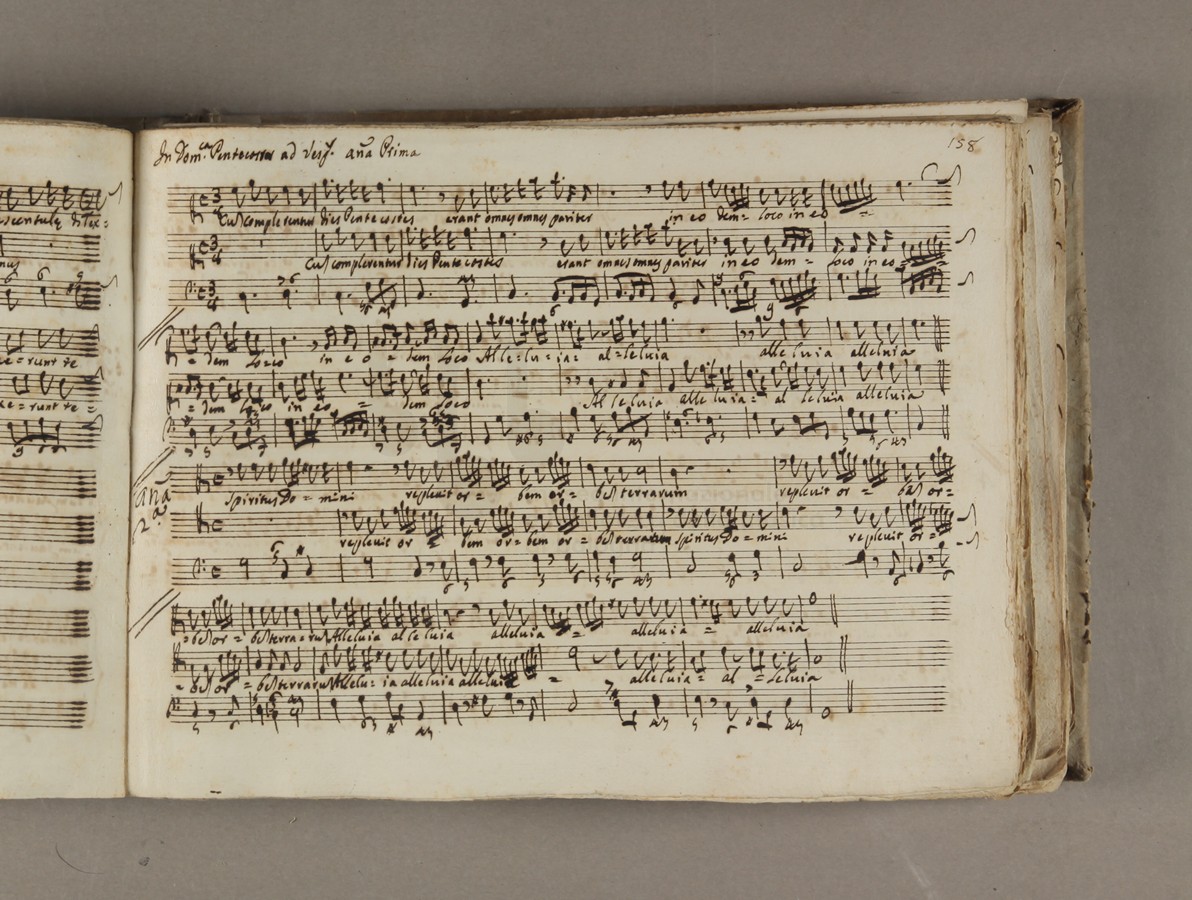 158
In Dom.ca Pentecostes ad Vesp. aña Prima
Cuʃ complerentur dies Pentecostes erant omnes omnes pariter in eo dem= loco in eo =
Cuʃ complerentur dies Pentecostes erant omnes omnes pariter in eo dem = loco in eo =
= dem loco in e o = dem loco Alle=lu=ia= al=leluia alleluia alleluia
= dem loco in eo = dem loco Alleluia alleluia= al leluia alleluia
aña 2a
Spiritus Do = mini replevit or = bem or = beʃ terrarum replevit or = beʃ or =
replevit or = bem or = bem or = beʃ terrarum Spiritus Do = mini replevit or =
= beʃ or = beʃ terra = ruʃ Alleluia al le luia alleluia = alleluia = alleluia
= beʃ or = beʃ terraruʃ Allelu= ia alleluia alleluia = alleluia = al = leluia